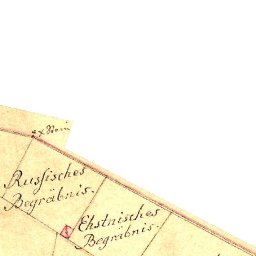 Russisches
Begräbnis.
Ehstnisches
Begräbnis.